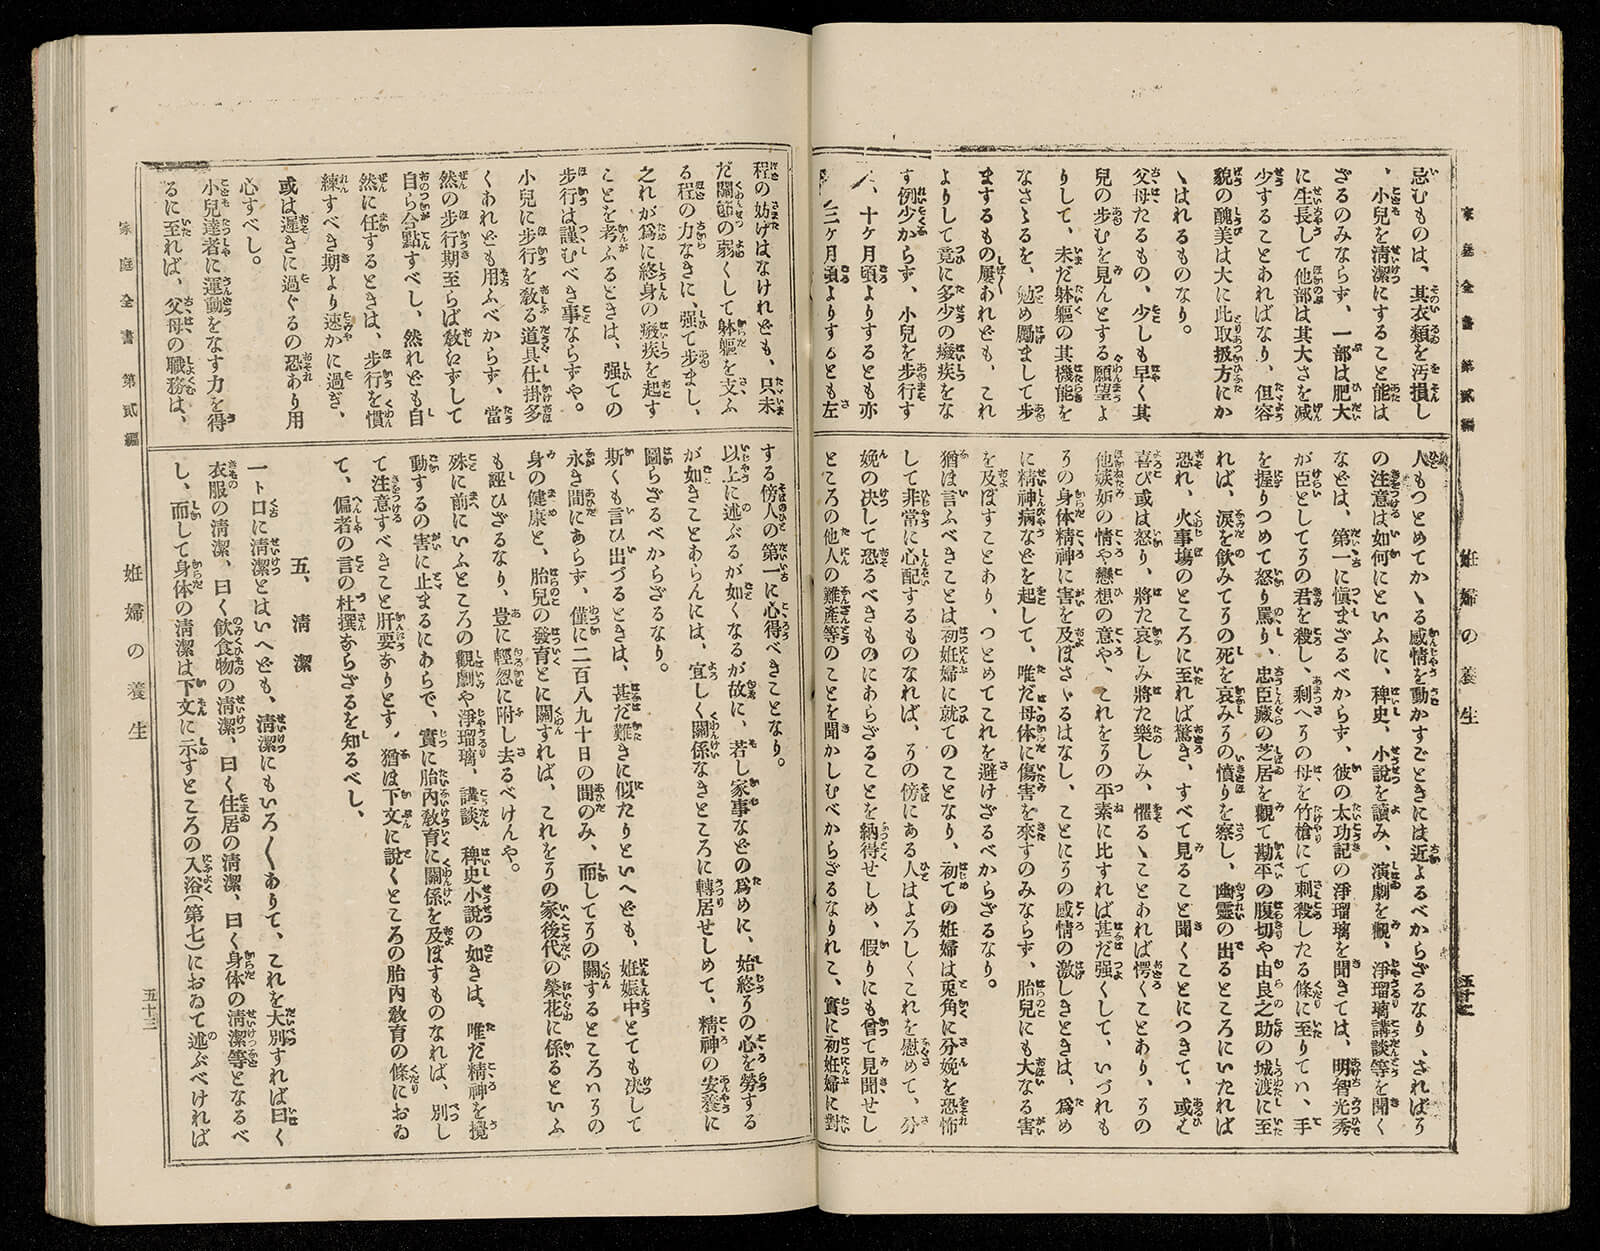 家庭全書 第貳編
忌むものは、其衣類を汚損し
、小兒を清潔にすること能は
ざるのみならず、一部は肥大
に生長して他部は其大さを减
少することあればなり、但容
貌の醜美は大に此取扱方にか
ゝはれるものなり。
父母たるもの、少しも早く其
兒の歩むを見んとする願望よ
りして、未だ躰軀の其機能を
なさゞるを、勉め勵まして歩
まするもの屡〻あれども、これ
よりして竟に多少の癈疾をな
す例少からず、小兒を歩行す
十ケ月頃よりするとも亦
三ケ月頃よりするとも左
姙婦の養生
人もつとめてかゝる感情を動かすごときには近よるべからざるなり、さればそ
の注意は如何にといふに、稗史、小説を讀み、演劇を觀、淨瑠璃講談等を聞く
などは、第一に愼まざるべからず、彼の太功記の淨瑠璃を聞きては、明智光秀
が臣としてその君を殺し、剩へその母を竹槍にて刺殺したる條に至りてハ、手
を握りつめて怒り罵り、忠臣藏の芝居を觀て勘平の腹切や由良之助の城渡に至
れば、涙を飮みてその死を哀みその憤りを察し、幽靈の出るところにいたれば
恐れ、火事塲のところに至れば驚き、すべて見ること聞くことにつきて、或は
喜び或は怒り、將た哀しみ將た樂しみ、懼るゝことあれば愕くことあり、その
他嫉妬の情や戀想の意や、これをその平素に比すれば甚だ强くして、いづれも
その身体精神に害を及ぼさゞるはなし、ことにその感情の激しきときは、爲め
に精神病などを起して、唯だ母体に傷害を來すのみならず、胎兒にも大なる害
を及ぼすことあり、つとめてこれを避けざるべからざるなり。
猶ほ言ふべきことは初姙婦に就てのことなり、初ての姙婦は兎角に分娩を恐怖
して非常に心配するものなれば、その傍にある人はよろしくこれを慰めて、分
娩の决して恐るべきものにあらざることを納得せしめ、假りにも曾て見聞せし
ところの他人の難產等のことを聞かしむべからざるなりれこ、實に初姙婦に對
五十二
程の妨げはなけれども、只未
だ關節の弱くして躰軀を支ふ
る程の力なきに、强て歩まし、
之れが爲に終身の癈疾を起す
ことを考ふるときは、强ての
歩行は謹むべき事ならずや。
小兒に歩行を敎る道具仕掛多
くあれども用ふべからず、當
然の歩行期至らば敎えずして
自ら合點すべし、然れども自
然に任するときは、歩行を慣
練すべき期より速かに過ぎ、
或は遲きに過ぐるの恐あり用
心すべし。
小兒達者に運動をなす力を得
るに至れば、父母の職務は、
する傍人の第一に心得べきことなり。
以上に述ぶるが如くなるが故に、若し家事などの爲めに、始終その心を勞する
が如きことあらんには、宜しく關係なきところに轉居せしめて、精神の安養に
圖らざるべからざるなり。
斯くも言ひ出づるときは、甚だ難きに似たりといへども、姙娠中とても决して
永き間にあらず、僅に二百八九十日の間のみ、而してその關するところハその
身の健康と、胎兒の發育とに關すれば、これをその家後代の榮花に係るといふ
も誣ひざるなり、豈に輕忽に附し去るべけんや。
殊に前にいふところの觀劇や淨瑠璃、講談、稗史小説の如きは、唯だ精神を攪
動するの害に止まるにあらで、實に胎內敎育に關係を及ぼすものなれば、別し
て注意すべきこと肝要なりとす、猶ほ下文に說くところの胎內敎育の條におゐ
て、偏者の言の杜撰ならざるを知るべし、
五、淸潔
一ト口に淸潔とはいへども、淸潔にもいろ〳〵ありて、これを大別すれば曰く
衣服の淸潔、曰く飮食物の淸潔、曰く住居の淸潔、曰く身体の淸潔等となるべ
し、而して身体の淸潔は下文に示すところの入浴(第七)におゐて述ぶべければ
家庭全書 第貳編
姙婦の養生
五十三